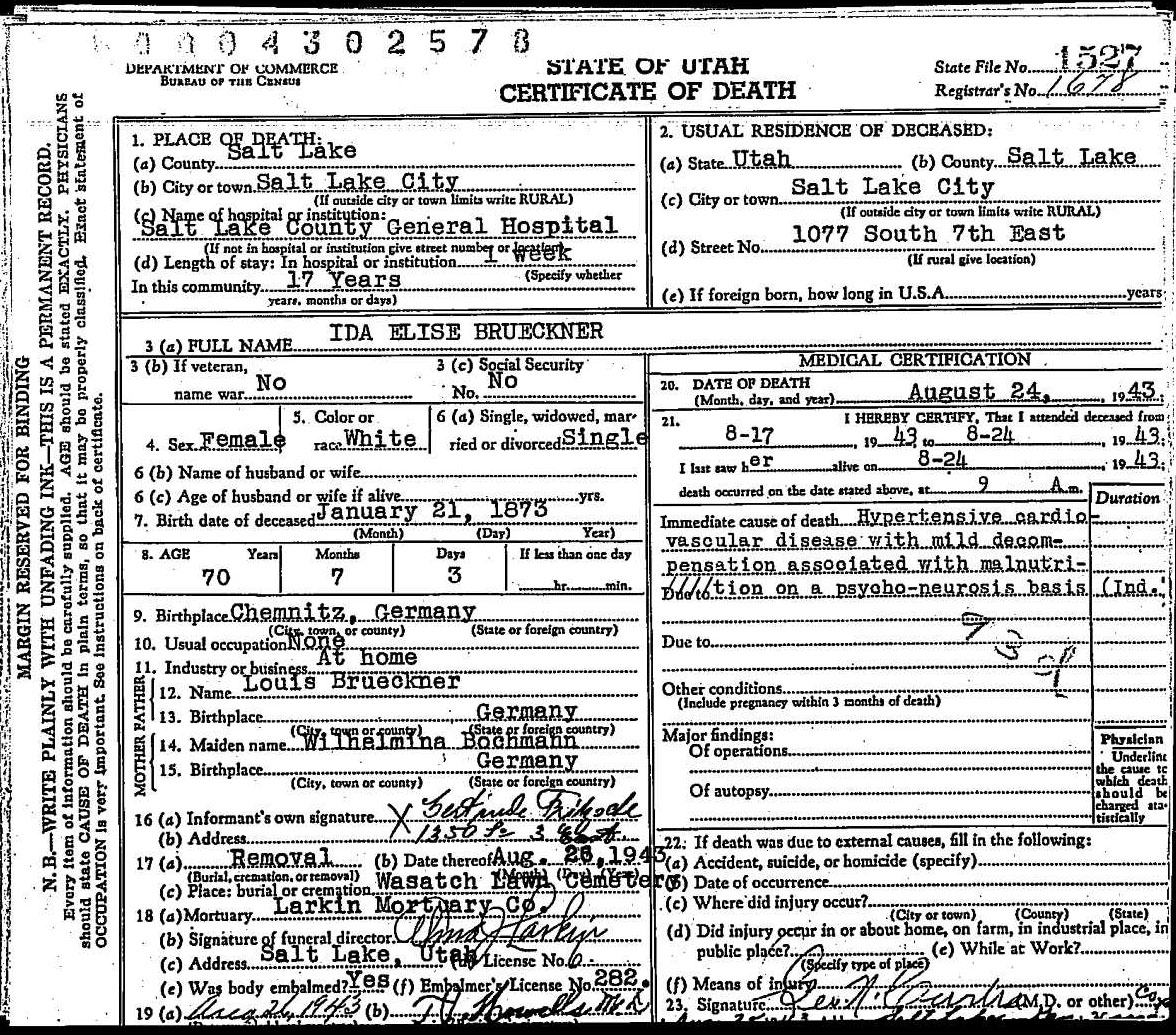 0004302578
DEPARTMENT OF COMMERCE
BUREAU OF THE CENSUS
STATE OF UTAH
CERTIFICATE OF DEATH
State File No. 1527
Registrar's No. 1678
MARGIN RESERVED FOR BINDING
N. B.—WRITE PLAINLY WITH UNFADING INK—THIS IS A PERMANENT RECORD.
Every item of information should be carefully supplied. AGE should be stated EXACTLY. PHYSICIANS
should state CAUSE OF DEATH in plain terms, so that it may be properly classified. Exact statement of
OCCUPATION is very important. See instructions on back of certificate.
1. PLACE OF DEATH:
(a) County Salt Lake
(b) City or town Salt Lake City
(If outside city or town limits write RURAL)
(c) Name of hospital or institution:
Salt Lake County General Hospital
(If not in hospital or institution give street number or location)
(d) Length of stay: In hospital or institution 1 week
(Specify whether
In this community 17 Years
years, months or days)
2. USUAL RESIDENCE OF DECEASED:
(a) State Utah (b) County Salt Lake
(c) City or town Salt Lake City
(If outside city or town limits write RURAL)
(d) Street No. 1077 South 7th East
(If rural give location)
(e) If foreign born, how long in U.S.A. years
3 (a) FULL NAME IDA ELISE BRUECKNER
3 (b) If veteran,
name war No
3 (c) Social Security
No. No
4. Sex Female
5. Color or
race White
6 (a) Single, widowed, mar-
ried or divorced Single
6 (b) Name of husband or wife
6 (c) Age of husband or wife if alive yrs.
7. Birth date of deceased January 21, 1873
(Month) (Day) Year)
8. AGE Years Months Days If less than one day
70 7 3 hr. min.
9. Birthplace Chemnitz, Germany
(City, town, or county) (State or foreign country)
10. Usual occupation None
11. Industry or business At home
FATHER
12. Name Louis Brueckner
13. Birthplace Germany
(City, town or county) (State or foreign country)
MOTHER
14. Maiden name Wilhelmina Bochmann
15. Birthplace Germany
(City, town or county) (State or foreign country)
16 (a) Informant's own signature X Gertrude
(b) Address 1350 So 3 East
17 (a) Removal (b) Date thereof Aug. 26, 1943
(Burial, cremation, or removal) (Month) (Day) (Year)
(c) Place: burial or cremation Wasatch Lawn Cemetery
18 (a) Mortuary Larkin Mortuary Co.
(b) Signature of funeral director Alma Larkin
(c) Address Salt Lake, Utah (d) License No. 6
(e) Was body embalmed? Yes (f) Embalmer's License No. 282.
19 (a) Aug 26, 1943 (b) T. J. Howells M.D.
MEDICAL CERTIFICATION
20. DATE OF DEATH
(Month, day, and year) August 24, 1943.
21. I HEREBY CERTIFY, That I attended deceased from
8-17 1943 to 8-24 1943.
I last saw her alive on 8-24 1943.
death occurred on the date stated above, at 9 A.m.
Duration
Immediate cause of death Hypertensive cardio-
vascular disease with mild decom-
pensation associated with malnutri-
Due to tion on a psycho-neurosis basis (Ind.
Due to
Other conditions
(Include pregnancy within 3 months of death)
Major findings:
Of operations
Of autopsy
Physician
Underline
the cause to
which death
should be
charged sta-
tistically
22. If death was due to external causes, fill in the following:
(a) Accident, suicide, or homicide (specify)
(b) Date of occurrence
(c) Where did injury occur?
(City or town) (County) (State)
(d) Did injury occur in or about home, on farm, in industrial place, in
public place? (e) While at Work?
(Specify type of place)
(f) Means of injury
23. Signature (M.D. or other)